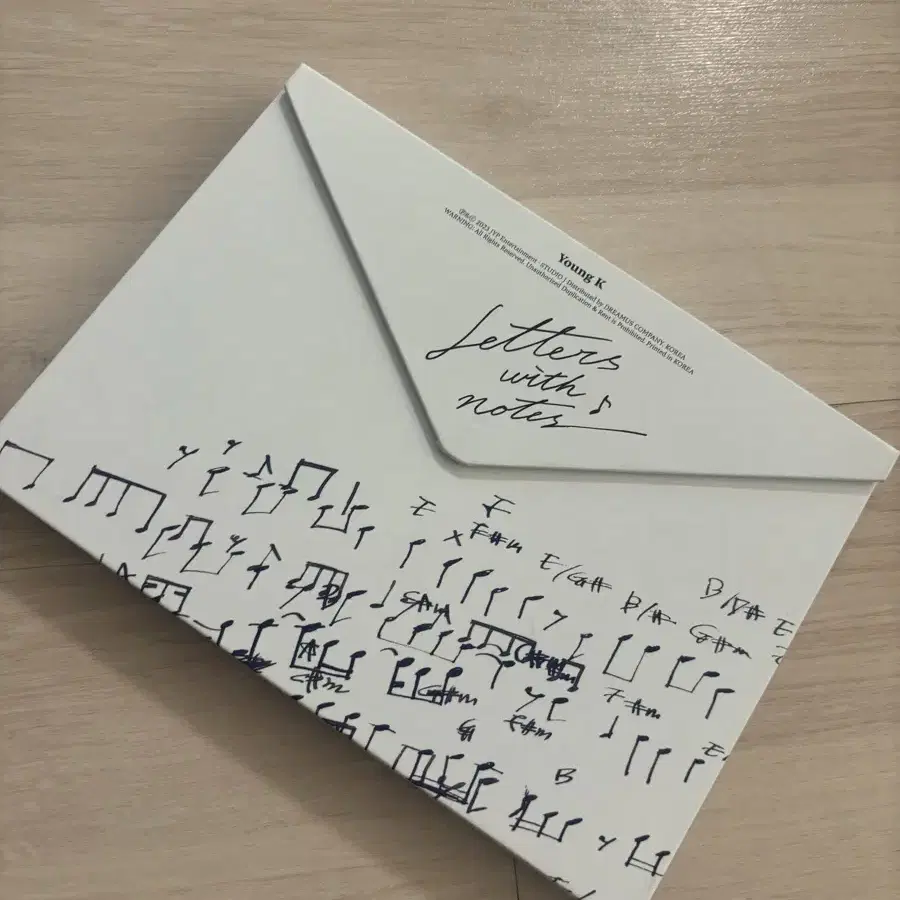 Ⓟ&Ⓒ 2023 JYP Entertainment · STUDIO J Distributed by DREAMUS COMPANY. KOREA
WARNING: All Rights Reserved. Unauthorized Duplication & Rent is Prohibited. Printed in KOREA
Young K
Letters
with
notes
E
F#m
E/G#
B/D#
E
G#m
C#m
G#m
F#m
F#m
B